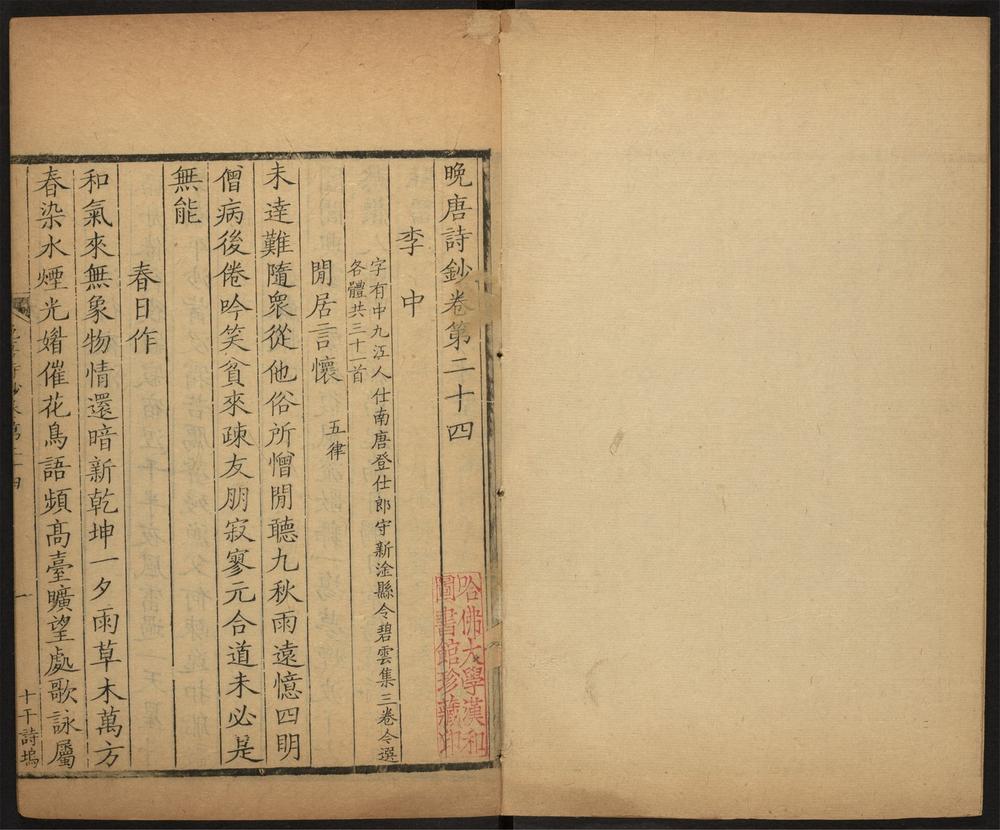 晚唐詩鈔卷第二十四
李中
字有中九江人仕南唐登仕郎守新淦縣令碧雲集三卷今選
各體共三十一首
閒居言懷 五律
未達難隨衆從他俗所憎閒聽九秋雨遠憶四明
僧病後倦吟笑貧來疎友朋寂寥元合道未必是
無能
春日作
和氣來無象物情還暗新乾坤一夕雨草木萬方
春染水煙光媚催花鳥語頻髙臺曠望處歌詠屬
一
十干詩塢
哈佛大學漢和
圖書館珍藏印